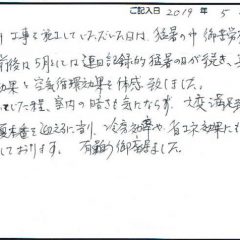 ご記入日 2019年 5
工事を施工していただいた日は、猛暑の中 御苦労
前後は5月としては連日記録的猛暑の日が続き、
効果と空気循環効果を体感致しました。
していた程、室内の暑さも気にならず、大変満足
夏本番を迎えるに当り、冷房効率や、省エネ効果にも
しております。有難う御座居ました。